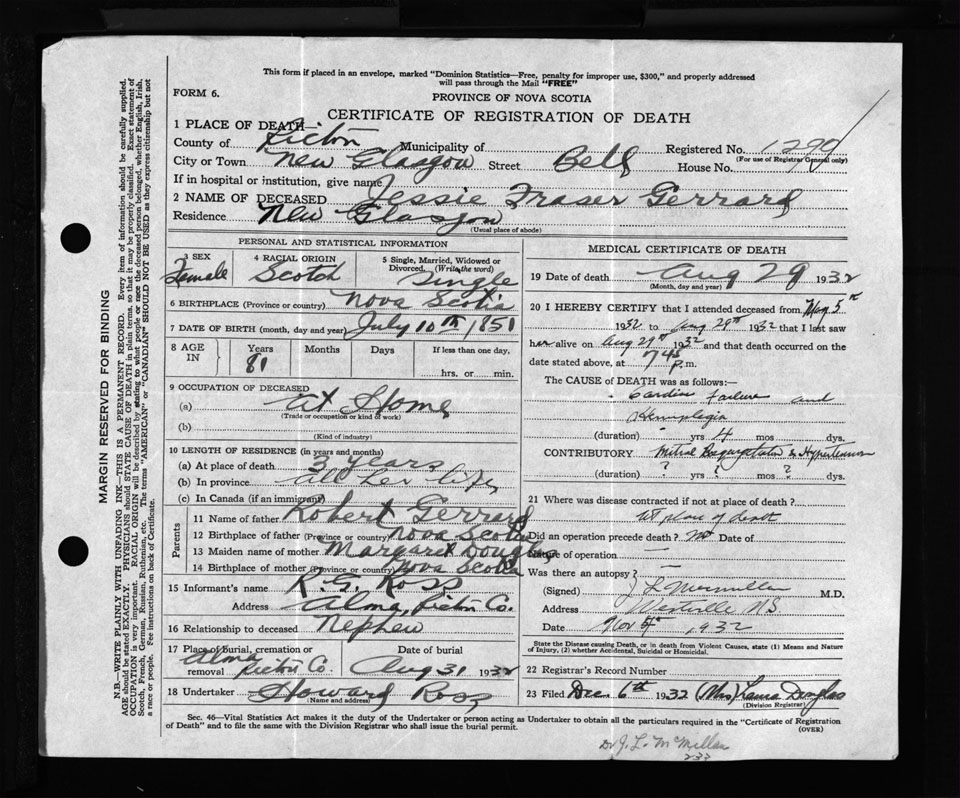 This form if placed in an envelope, marked "Dominion Statistics—Free, penalty for improper use, $300," and properly addressed
will pass through the Mail "FREE"
FORM 6.
PROVINCE OF NOVA SCOTIA
CERTIFICATE OF REGISTRATION OF DEATH
1 PLACE OF DEATH
County of Pictou Municipality of Registered No. 1290
(For use of Registrar General only)
City or Town New Glasgow Street Bell House No.
If in hospital or institution, give name
2 NAME OF DECEASED Jessie Fraser Gerrard
Residence New Glasgow
(Usual place of abode)
PERSONAL AND STATISTICAL INFORMATION
3 SEX
Female
4 RACIAL ORIGIN
Scotch
5 Single, Married, Widowed or
Divorced. (Write the word)
Single
6 BIRTHPLACE (Province or country) Nova Scotia
7 DATE OF BIRTH (month, day and year) July 10th, 1851
8 AGE IN
Years Months Days If less than one day,
81
hrs. or min.
9 OCCUPATION OF DECEASED
(a) At Home
(Trade or occupation or kind of work)
(b)
(Kind of industry)
10 LENGTH OF RESIDENCE (in years and months)
(a) At place of death 3 years
(b) In province all her life
(c) In Canada (if an immigrant)
Parents
11 Name of father Robert Gerrard
12 Birthplace of father (Province or country) Nova Scotia
13 Maiden name of mother Margaret Douglas
14 Birthplace of mother (Province or country) Nova Scotia
15 Informant's name R. G. Ross
Address Alma, Pictou Co.
16 Relationship to deceased Nephew
17 Place of burial, cremation or
removal Alma Pictou Co.
Date of burial
Aug 31 1932
18 Undertaker Howard Ross
(Name and address)
MEDICAL CERTIFICATE OF DEATH
19 Date of death Aug 29 1932
(Month, day and year)
20 I HEREBY CERTIFY that I attended deceased from May 5th
1932 to Aug 29th 1932 that I last saw
her alive on Aug 29th 1932 and that death occurred on the
date stated above, at 7 45 p.m.
The CAUSE of DEATH was as follows:
Cardiac Failure and
Hemiplegia
(duration) yrs 4 mos dys.
CONTRIBUTORY Mitral Regurgitation & Hypertension
(duration) ? yrs ? mos ? dys.
21 Where was disease contracted if not at place of death?
at place of death
Did an operation precede death? no Date of
Nature of operation —
Was there an autopsy? —
(Signed) J L McMillan M.D.
Address Westville N.S
Date Nov 1932
State the Disease causing Death, or in death from Violent Causes, state (1) Means and Nature
of Injury, (2) whether Accidental, Suicidal or Homicidal.
22 Registrar's Record Number
23 Filed Dec. 6th 1932 (Mrs) Laura Douglas
(Division Registrar)
Sec. 46—Vital Statistics Act makes it the duty of the Undertaker or person acting as Undertaker to obtain all the particulars required in the "Certificate of Registration
of Death" and to file the same with the Division Registrar who shall issue the burial permit.
(OVER)
Dr J. L. McMillan
233
MARGIN RESERVED FOR BINDING
N.B.—WRITE PLAINLY WITH UNFADING INK—THIS IS A PERMANENT RECORD. Every item of information should be carefully supplied.
AGE should be stated EXACTLY. PHYSICIANS should STATE CAUSE OF DEATH in plain terms, so that it may be properly classified. Exact statement of
OCCUPATION is very important. RACIAL ORIGIN will be described by stating to what people or race the deceased person belonged, whether English, Irish,
Scotch, French, German, Russian, Ruthenian, etc. The terms "AMERICAN" or "CANADIAN" SHOULD NOT BE USED as they express citizenship but not
a race or people. Fee instructions on back of Certificate.